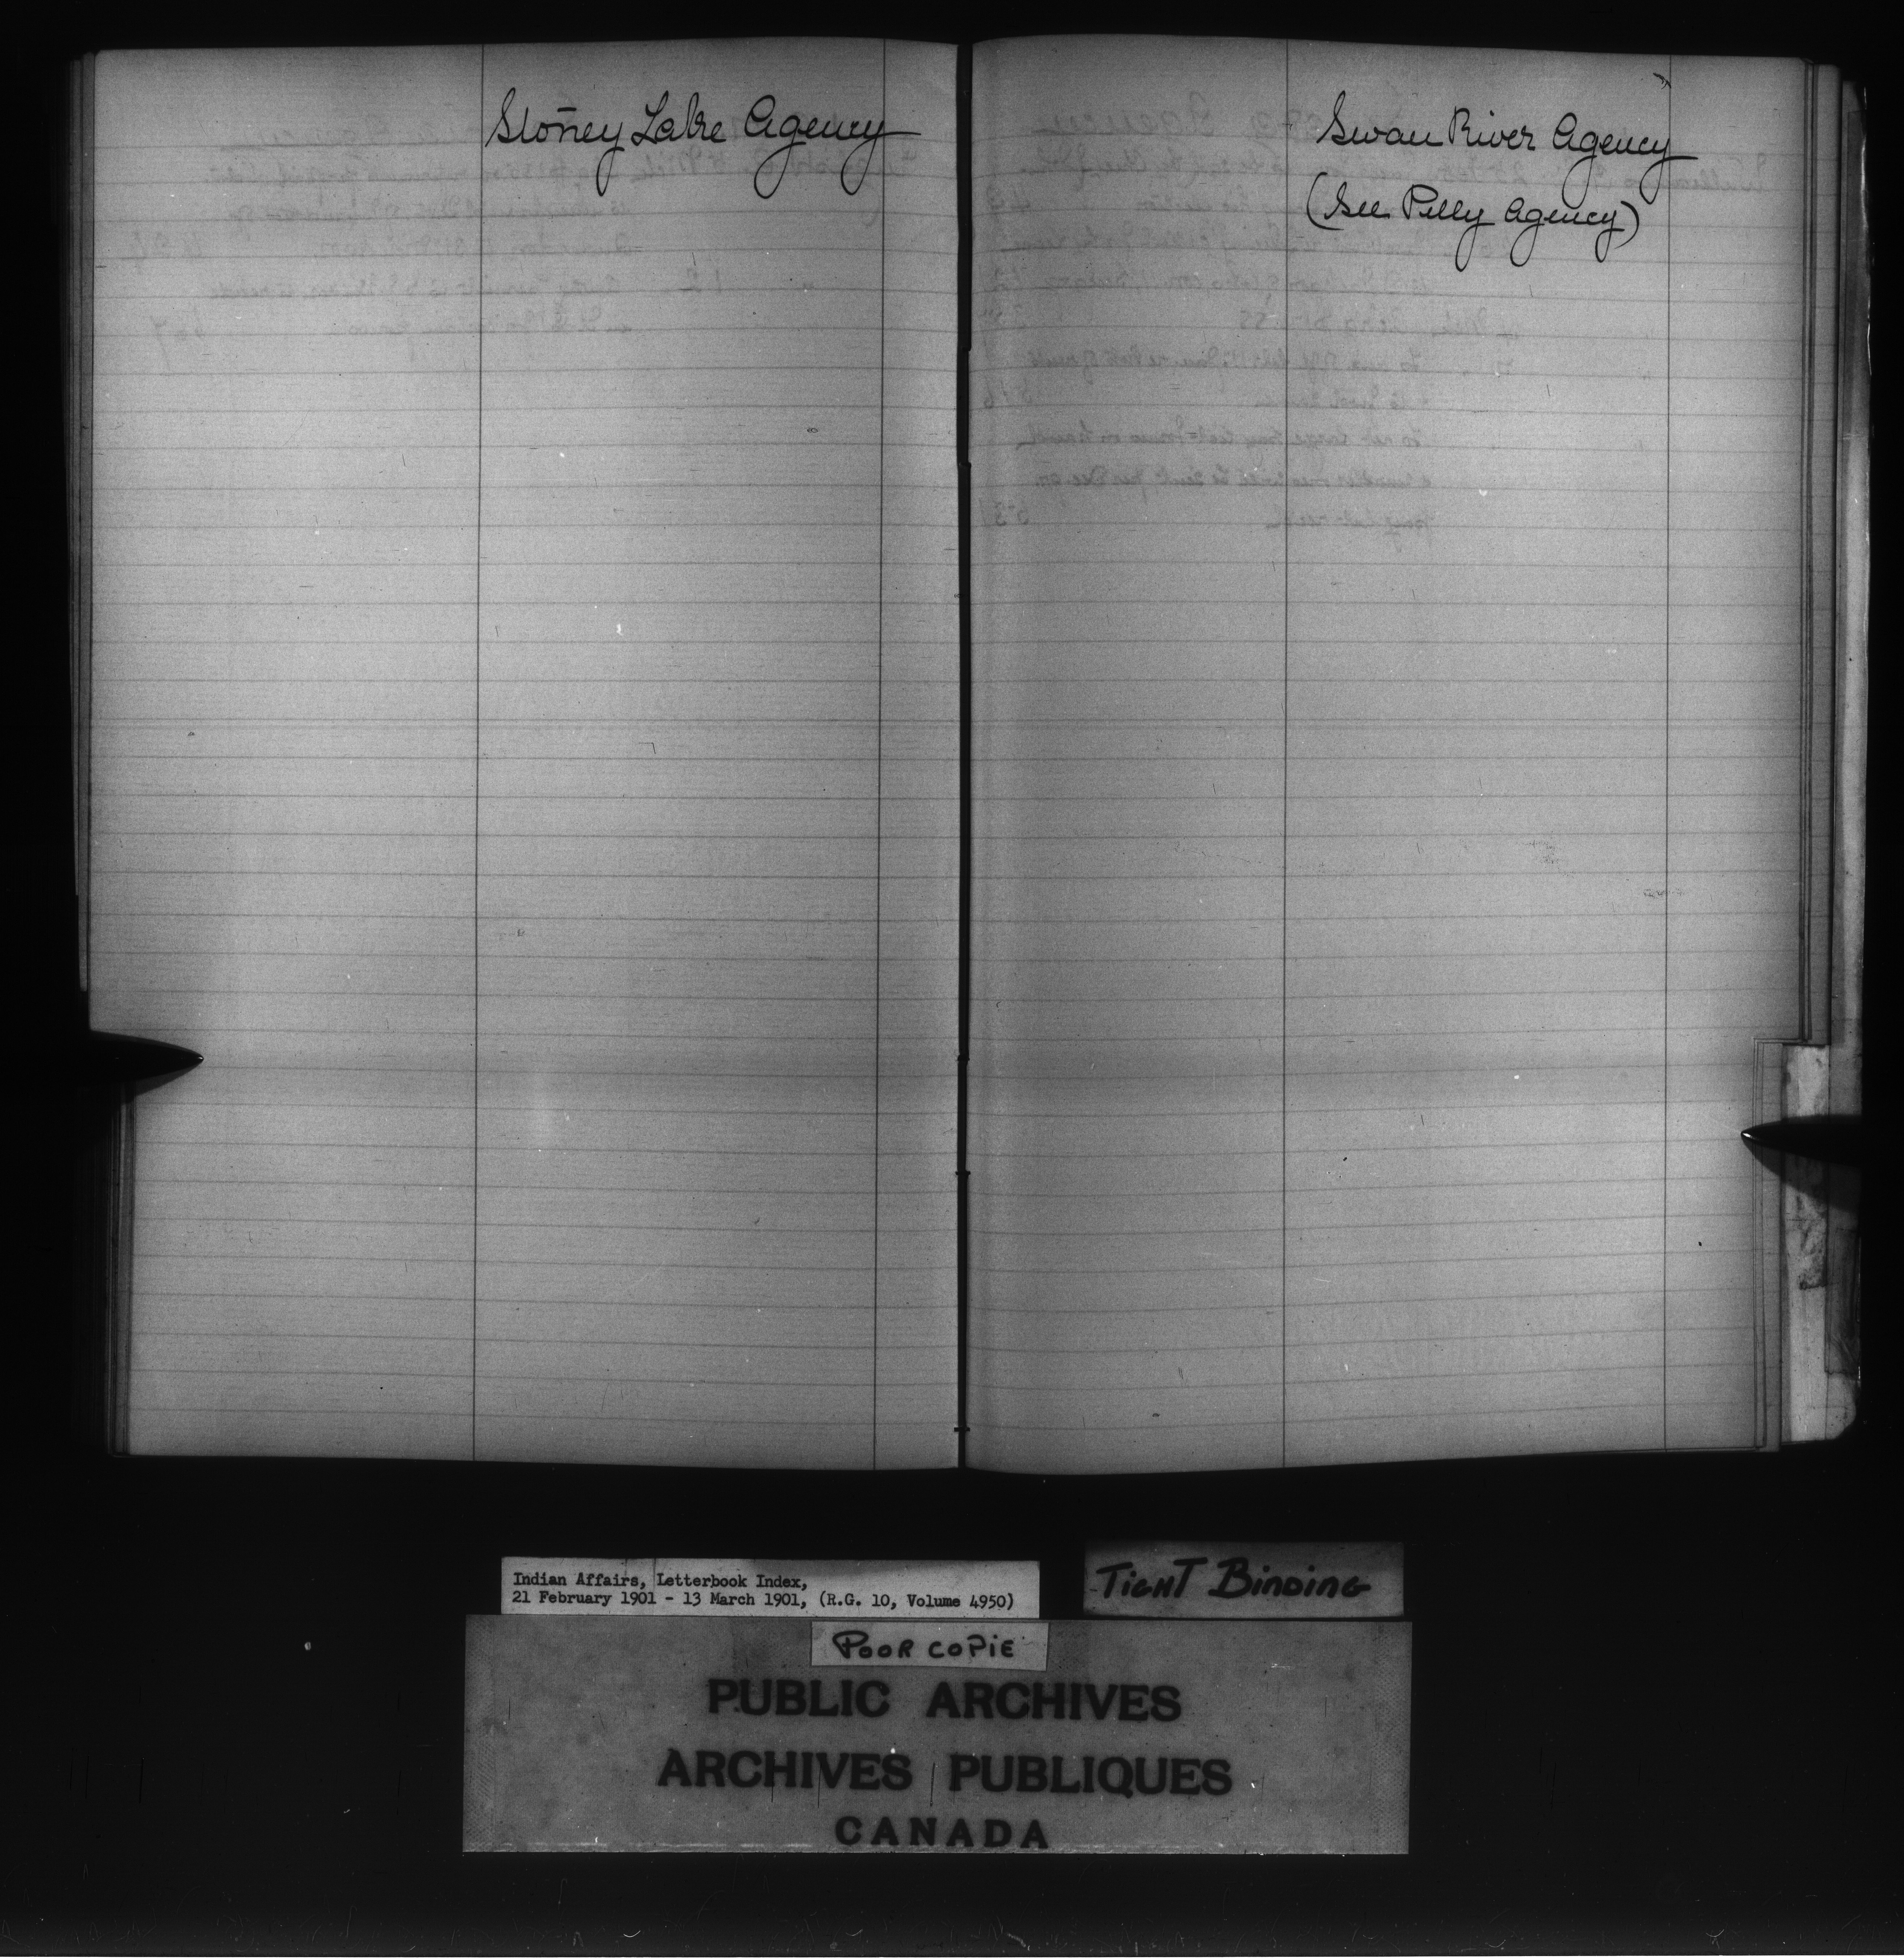 Stoney Lake Agency
Swan River Agency
(See Pelly Agency)
Indian Affairs, Letterbook Index,
21 February 1901 - 13 March 1901, (R.G. 10, Volume 4950)
TIGHT BINDING
POOR COPIE
PUBLIC ARCHIVES
ARCHIVES PUBLIQUES
CANADA